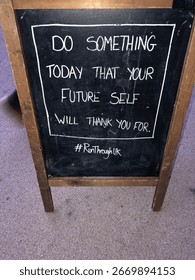 DO SOMETHING
TODAY THAT YOUR
FUTURE SELF
WILL THANK YOU FOR.
#RunThroughUK
shutterstock.com · 2669894153